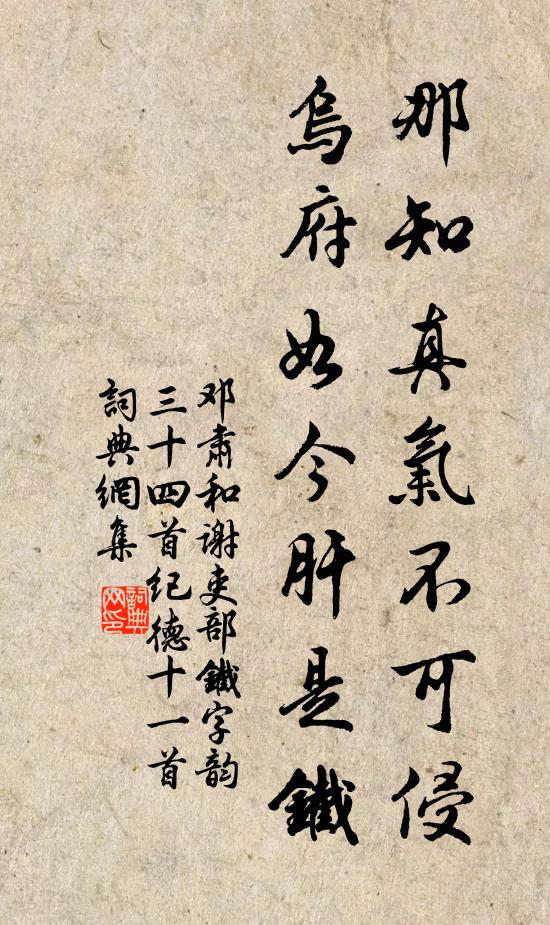 那知真氣不可侵
烏府如今肝是鐵
邓肃和谢吏部鐵字韵
三十四首纪德十一首
詞典網集
詞典網印